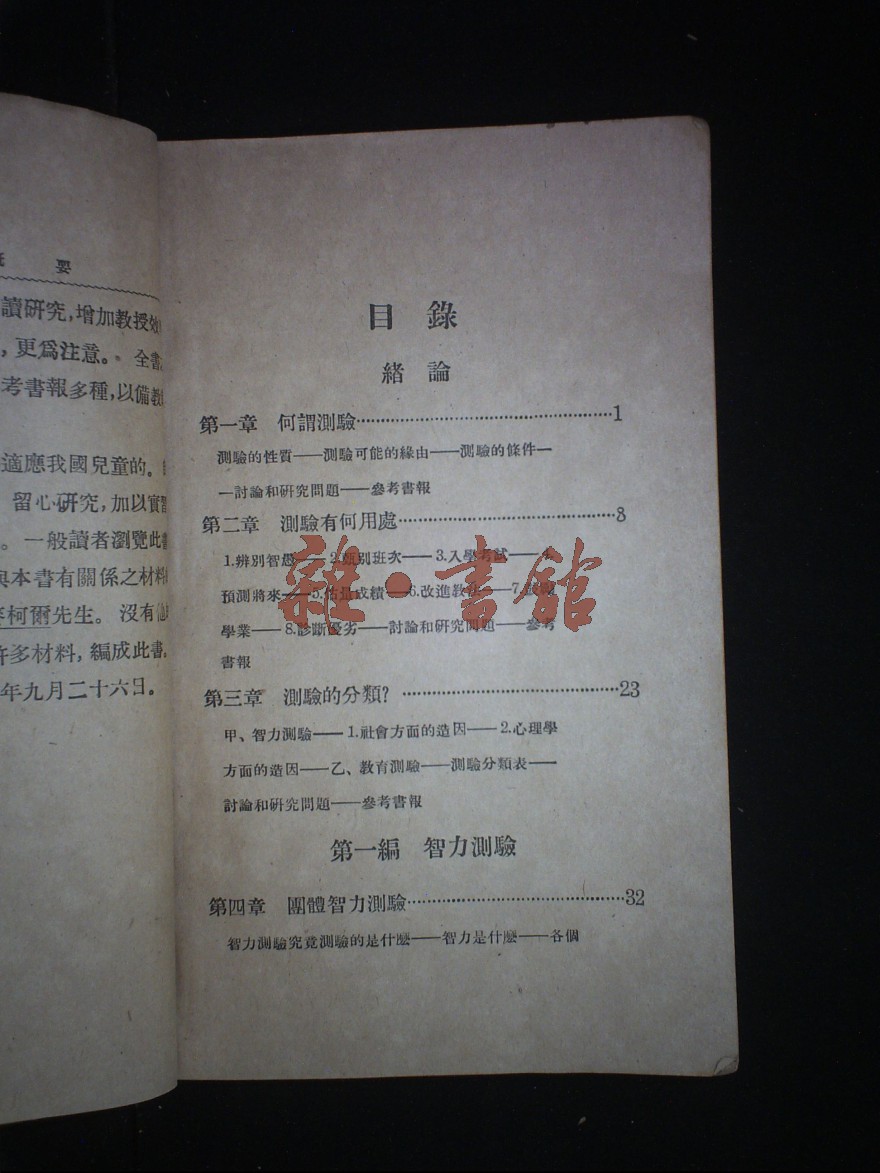 要
讀研究,增加教授效
,更爲注意。 全書
考書報多種,以備教
適應我國兒童的。
留心研究,加以實習
。 一般讀者瀏覽此書
與本書有關係之材料
柯爾先生。 沒有他
許多材料,編成此書。
年九月二十六日。
目錄
緒論
第一章 何謂測驗……1
測驗的性質——測驗可能的緣由——測驗的條件—
—討論和研究問題——參考書報
第二章 測驗有何用處……8
1.辨別智愚——2.甄別班次——3.入學考試——4.
預測將來——5.估量成績——6.改進教法——7.
學業——8.診斷優劣——討論和研究問題——參考
書報
第三章 測驗的分類?……23
甲、智力測驗——1.社會方面的造因——2.心理學
方面的造因——乙、教育測驗——測驗分類表——
討論和研究問題——參考書報
第一編 智力測驗
第四章 團體智力測驗……32
智力測驗究竟測驗的是什麼——智力是什麼——各個
雜·書館